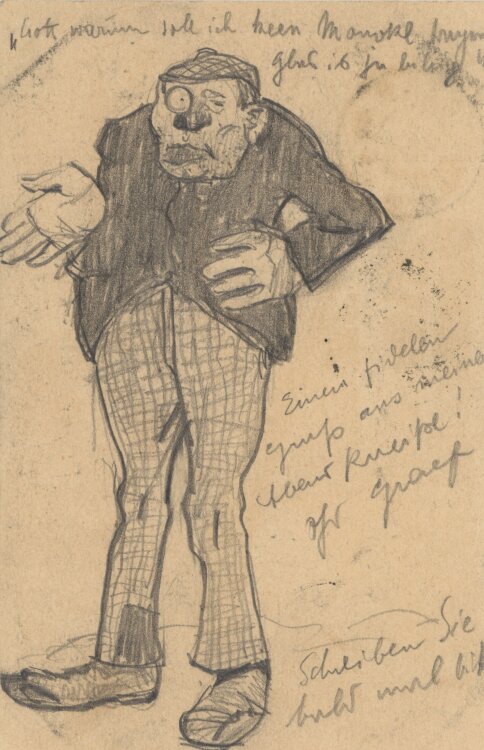 „Gott warum soll ich keen Monokel tragen
Glas is ja billig"
Einen fidelen
Gruß aus meiner
Abend Kneipe!
Ihr Graef
Schreiben Sie
bald mal bit